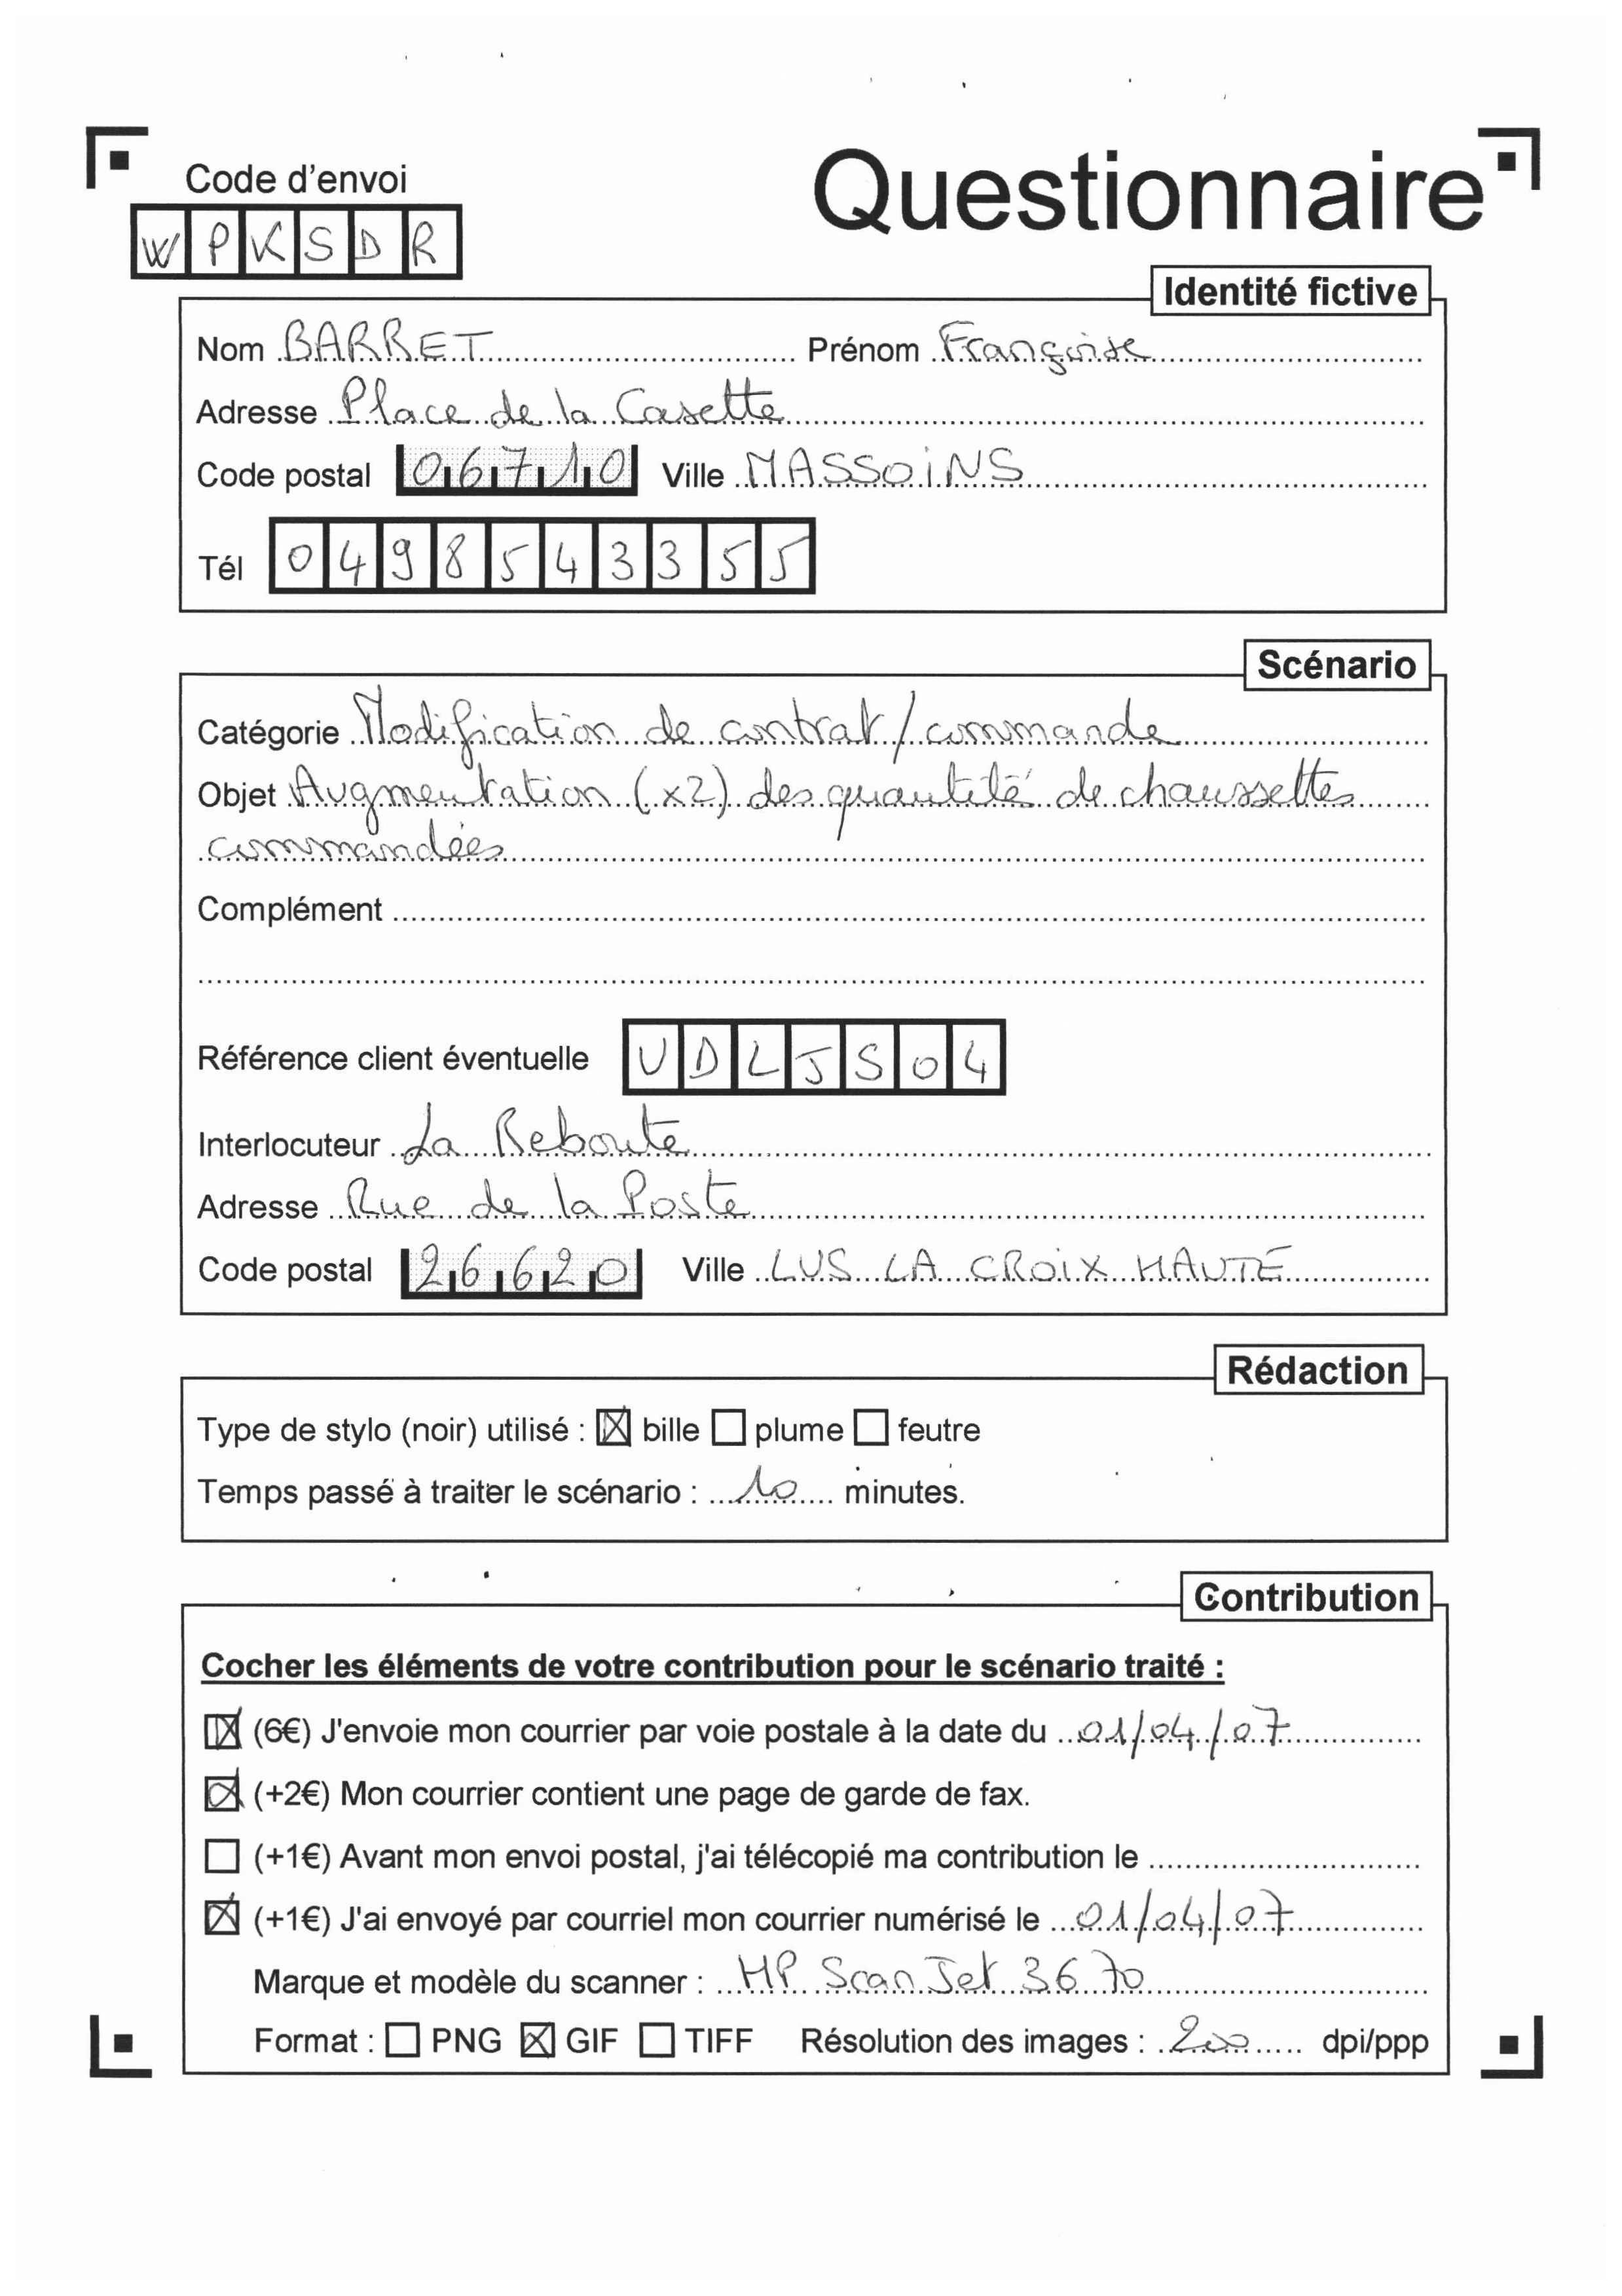 Code d'envoi
Questionnaire
WPKSDR
Identité fictive
Nom BARRET Prénom Françoise
Adresse Place de la Casette
Code postal 06710 Ville MASSOINS
Tél 0498543355
Scénario
Catégorie Modification de contrat / commande
Objet Augmentation (x2) des quantité de chaussettes
commandées
Complément
Référence client éventuelle UDLJS04
Interlocuteur La Reboute
Adresse Rue de la Poste
Code postal 26620 Ville LUS LA CROIX HAUTE
Rédaction
Type de stylo (noir) utilisé : ☒ bille ☐ plume ☐ feutre
Temps passé à traiter le scénario : 10 minutes.
Contribution
Cocher les éléments de votre contribution pour le scénario traité :
☒ (6€) J'envoie mon courrier par voie postale à la date du 01/04/07
☒ (+2€) Mon courrier contient une page de garde de fax.
☐ (+1€) Avant mon envoi postal, j'ai télécopié ma contribution le
☒ (+1€) J'ai envoyé par courriel mon courrier numérisé le 01/04/07
Marque et modèle du scanner : HP ScanJet 3670
Format : ☐ PNG ☒ GIF ☐ TIFF Résolution des images : 200 dpi/ppp